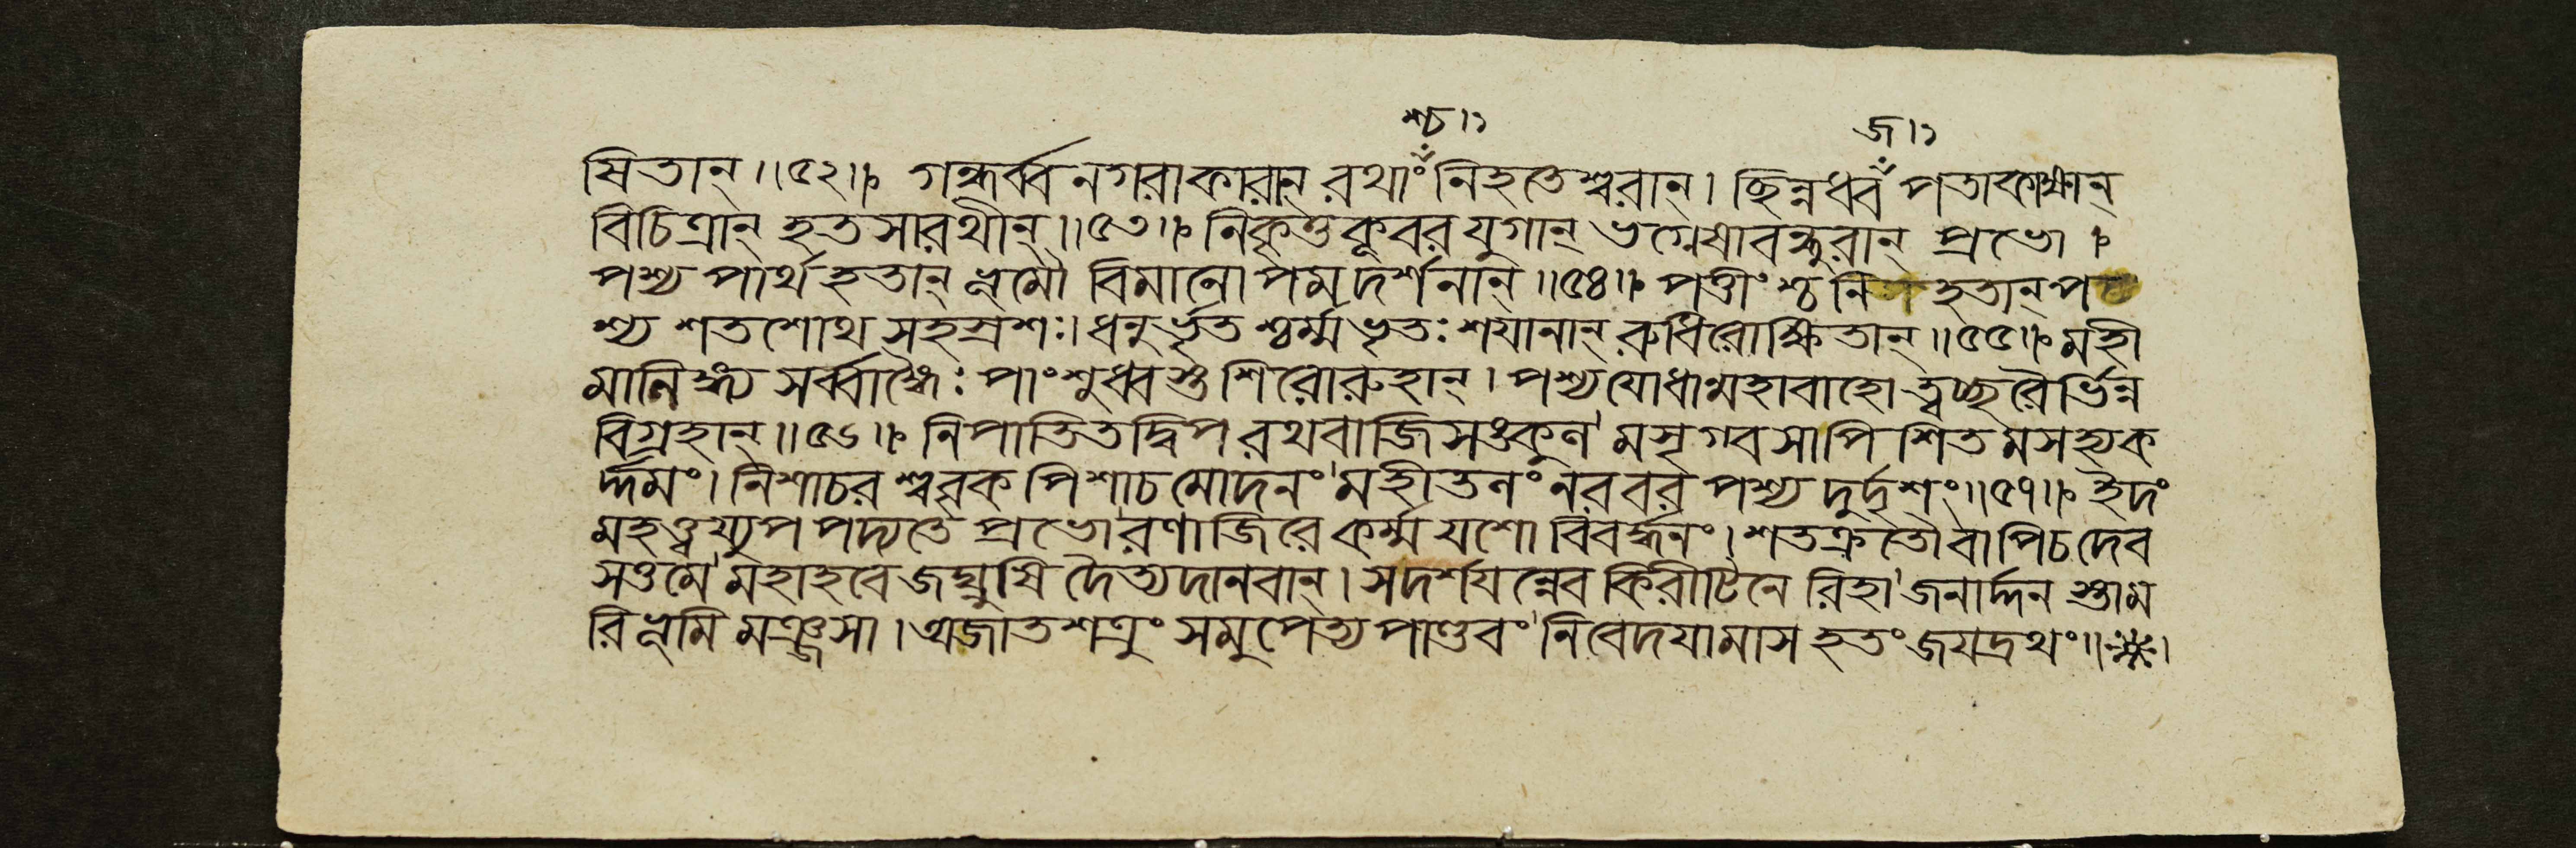 শ্চ।১ জ।১
ষিতান্॥৫২॥ গন্ধর্ব্বনগরাকারান্ রথাংনিহতেশ্বরান্। ছিন্নধ্বপতাকাক্ষান্
বিচিত্রান্ হতসারথীন্॥৫৩॥ নিকৃত্তকূবরযুগান্ ভগ্নেষাবন্ধুরান্ প্রভো।
পশ্য পার্থ হতান্ ভূমৌ বিমানোপমদর্শনান্॥৫৪॥ পত্তীংশ্চ নিহতান্প
শ্য শতশোথ সহস্রশঃ। ধনুর্ভৃতশ্চর্ম্মভৃতঃ শযানান্ রুধিরোক্ষিতান্॥৫৫॥ মহী
মালিঙ্গ্য সর্ব্বাঙ্গৈঃ পাংশুধ্বস্তশিরোরুহান্। পশ্য যোধান্মহাবাহো ত্বচ্ছরৈর্ভিন্ন
বিগ্রহান্॥৫৬॥ নিপাতিতদ্বিপরথবাজিসঙ্কুলমসৃগ্বসাপিশিতমসহ্যক
র্দ্দমং। নিশাচরশ্ববৃকপিশাচমোদনং মহীতলং নরবর পশ্য দুর্দৃশং॥৫৭॥ ইদং
মহত্ত্বয্যুপপদ্যতে প্রভো রণাজিরে কর্ম্ম যশোবিবর্দ্ধনং। শতক্রতৌ বাপি চ দেব
সত্তমে মহাহবে জঘ্নুষি দৈত্যদানবান্। সদর্শযন্নেব কিরীটিনেরিহা জনার্দ্দনস্তাম
রিভূমিমঞ্জসা। অজাতশত্রুং সমুপেত্য পাণ্ডবং নিবেদযামাস হতং জযদ্রথং॥